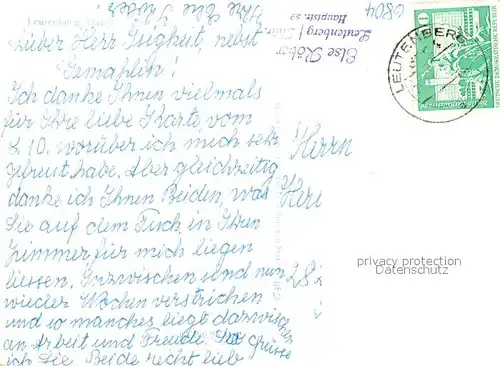 Lieber Herr Jugkeit, nebst
Gemahlin!
Ich danke Ihnen vielmals
für Ihre liebe Karte, vom
8.10. worüber ich mich sehr
gefreut habe. Aber gleichzeitig
danke ich Ihnen Beiden, was
Sie auf dem Tisch, in Ihren
Zimmer für mich liegen
liessen. Inzwischen sind nun
wieder Wochen verstrichen
und so manches liegt dazwischen
an Arbeit und Freude. So grüsse
ich Sie Beide recht lieb
Ihre Else Köber
6804
Else Köber
Leutenberg / Thür.
Hauptstr. 59
Leutenberg, Thür.
LEUTENBERG
10
Herrn
282
privacy protection
Datenschutz